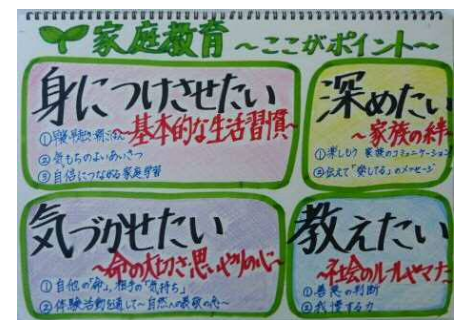 家庭教育 ～ここがポイント～
身につけさせたい
～基本的な生活習慣～
①早寝・早起き・朝ごはん
②気もちのよいあいさつ
③自信につながる家庭学習
深めたい
～家族の絆～
①楽しもう 家族のコミュニケーション
②伝えて「愛してる」のメッセージ
気づかせたい
～命の大切さ・思いやりの心～
①自他の「命」、相手の「気持ち」
②体験活動を通して～自然への畏敬の念～
教えたい
～社会のルールやマナー
①善悪の判断
②我慢する力